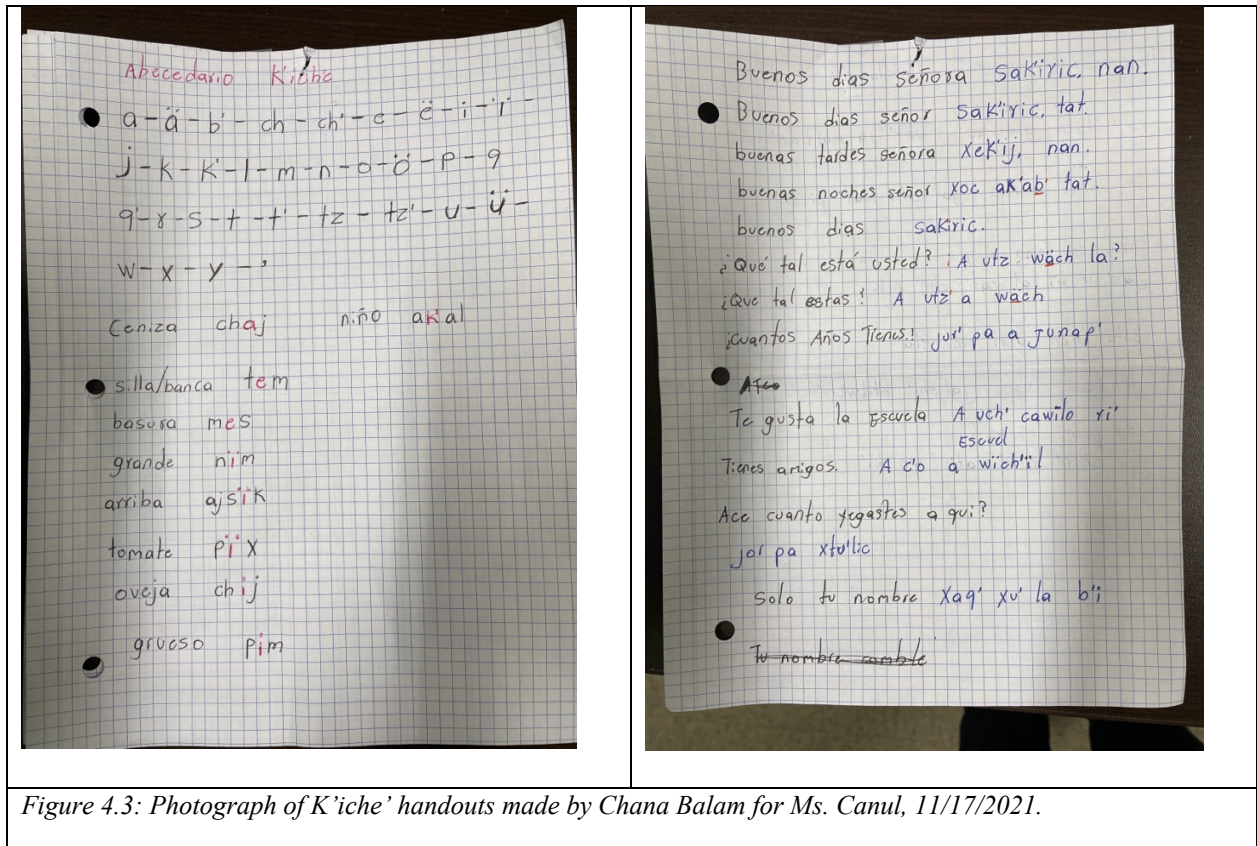 Abecedario K'iche
a-ä-b'-ch-ch'-e-ë-i-ï-
j-k-k'-l-m-n-o-ö-p-q
q'-r-s-t-t'-tz-tz'-u-ü-
w-x-y-'
Ceniza chaj niño ak'al
silla/banca tem
basura mes
grande nïm
arriba ajsïk
tomate pïx
oveja chij
grueso pim
Buenos dias señora Sakïric, nan.
Buenos dias señor Sakïric, tat.
buenas tardes señora xek'ij, nan.
buenas noches señor xoc ak'ab' tat.
buenos dias sakïric.
¿Qué tal está usted? ¡A utz wäch la?
¿Que tal estas! A utz a wäch
¡cuantos Años Tienes! jor' pa a junap'
Te gusta la Escuela A uch' cawilo ri'
Escuel
Tienes amigos. A c'o a wïch'ïl
Ace cuanto yegastes a qui?
jor pa xtu'lic
solo tu nombre xaq' xu' la b'i
Tu nombre
Figure 4.3: Photograph of K'iche' handouts made by Chana Balam for Ms. Canul, 11/17/2021.